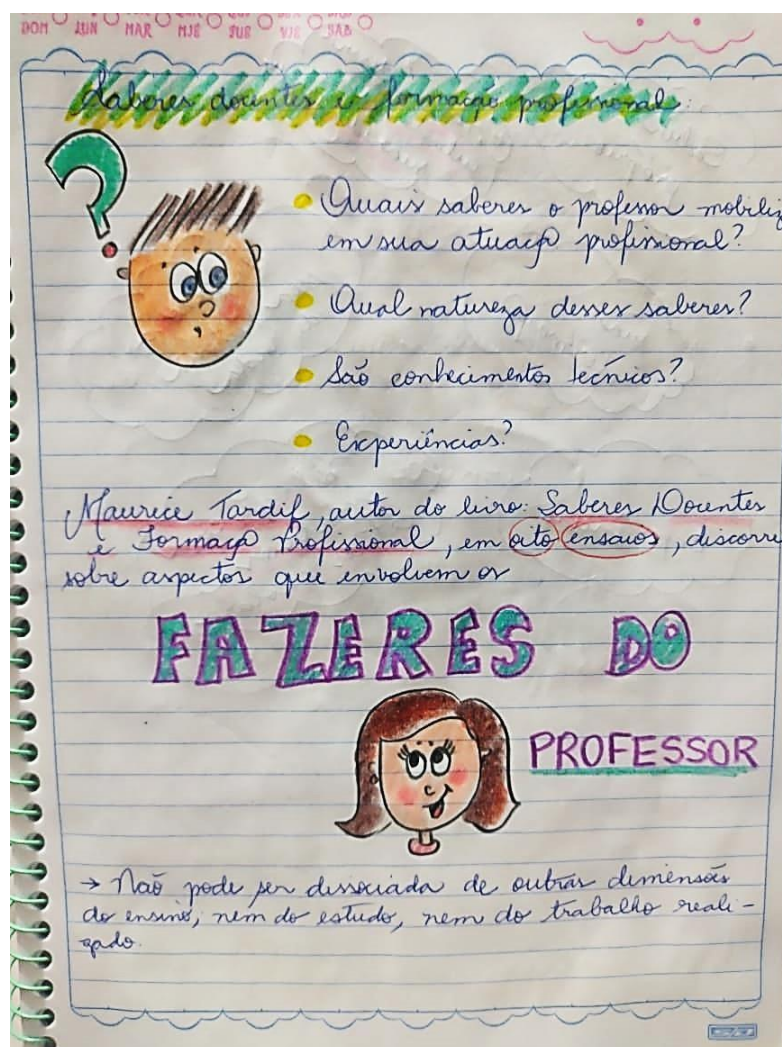 DOM LUN MAR MIE JUE VIE SAB
Saberes docentes e formação profissional:
?
• Quais saberes o professor mobiliz
em sua atuaçõ profissional?
• Qual natureza desses saberes?
• São conhecimentos técnicos?
• Experiências?
Maurice Tardif, autor do livro: Saberes Docentes
e Formaçõ Profissional, em oito ensaios, discorre
sobre aspectos que envolvem os
FAZERES DO
PROFESSOR
→ Não pode ser dissociada de outras dimensões
do ensino, nem do estudo, nem do trabalho reali-
zado.